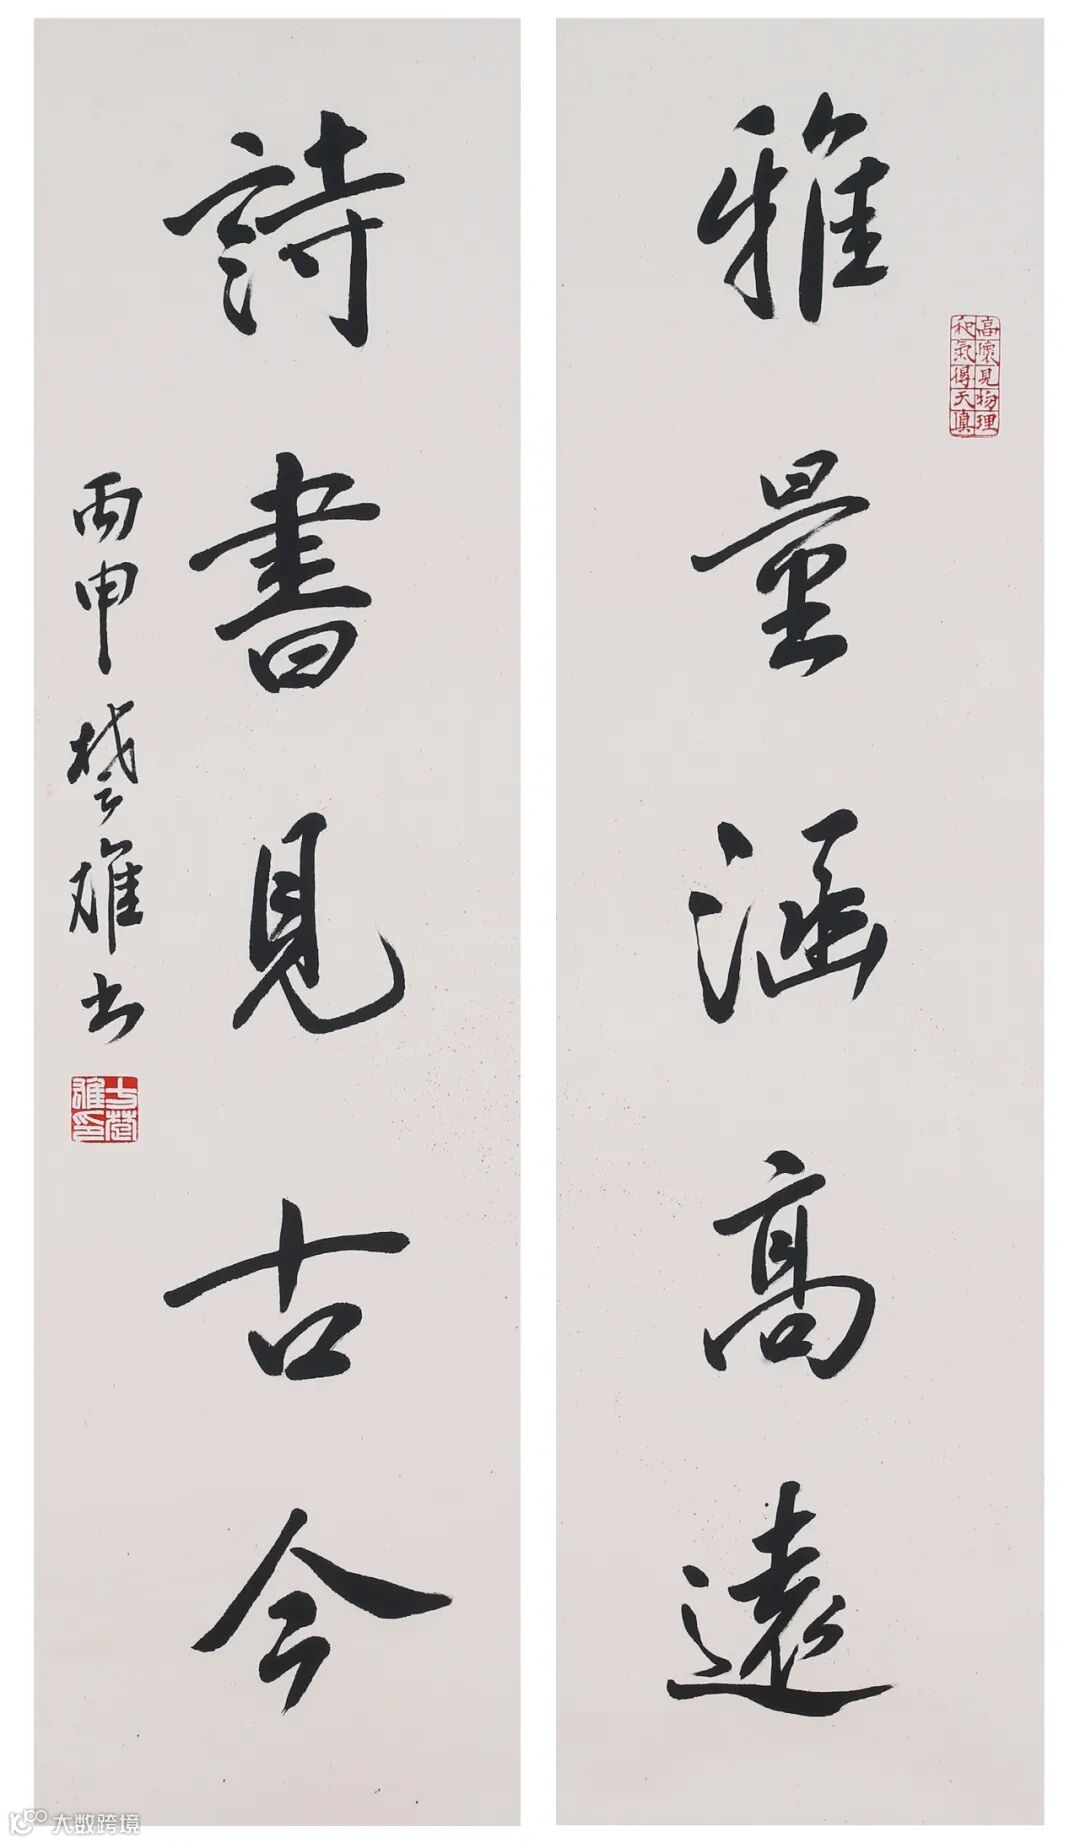 雅量涵高遠
高懷見物理
和氣得天真
詩書見古今
丙申楚雄书
方楚
雄印
大数跨境